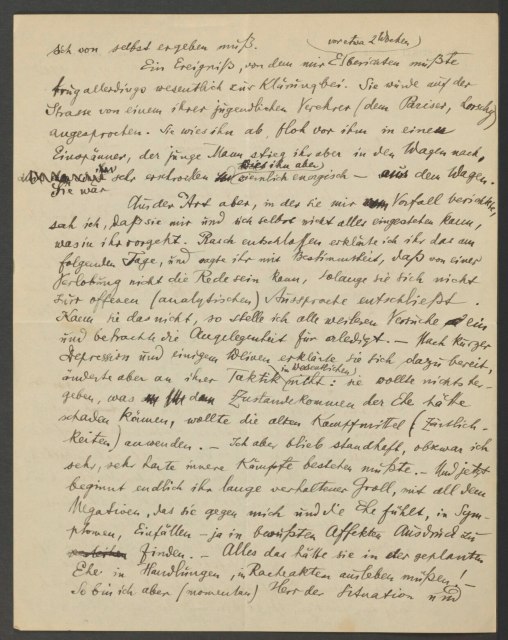 sich von selbst ergeben muß.
(vor etwa 2 Wochen)
Ein Ereigniß, von dem mir El. berichten mußte
trug allerdings wesentlich zur Klärung bei. Sie wurde auf der
Strasse von einem ihrer jugendlichen Verehrer (dem Pariser,
angesprochen. Sie wies ihn ab, floh vor ihm in einen
Einspänner, der junge Mann stieg ihr aber in den Wagen nach,
wies ihn aber
sehr erschrocken ziemlich energisch – aus dem Wagen.
Sie war
Aus der Art aber, in der sie mir Vorfall berichtete,
sah ich, daß sie mir und sich selbst nicht alles eingestehen kann,
was in ihr vorgeht. Rasch entschlossen erklärte ich ihr das am
folgenden Tage, und sagte ihr mit Bestimmtheit, daß von einer
Verlobung nicht die Rede sein kann, solange sie sich nicht
zur offenen (analytischen) Aussprache entschließt.
Kann sie das nicht, so stelle ich alle weiteren Versuche ein
und betrachte die Angelegenheit für erledigt. – Nach kurzer
Depression und einigem Weinen erklärte sie sich dazu bereit,
im Wesentlichen
änderte aber an ihrer Taktik nicht: sie wollte nichts her-
geben, was dem Zustandekommen der Ehe hätte
schaden können, wollte die alten Kampfmittel (Zärtlich-
keiten) anwenden. – Ich aber blieb standhaft, obzwar ich
sehr, sehr harte innere Kämpfe bestehen mußte. – Und jetzt
beginnt endlich ihr lange verhaltener Groll, mit all dem
Negativen, das sie gegen mich und die Ehe fühlt, in Sym-
ptomen, Einfällen – ja in bewußten Affekten Ausdruck zu
finden. – Alles das hätte sie in der geplanten
Ehe in Handlungen, in Racheakten ausleben müßen! –
So bin ich aber (momentan) Herr der Situation und